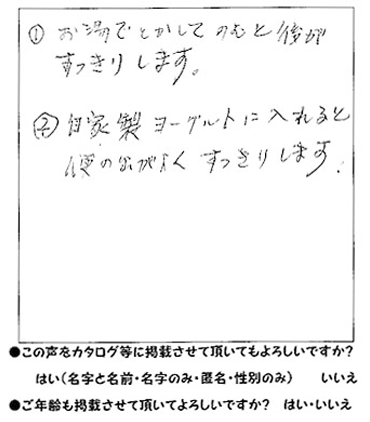 ① お湯でとかしてのむと後が
すっきりします。
② 自家製ヨーグルトに入れると
便の出がよくすっきりします。
●この声をカタログ等に掲載させて頂いてもよろしいですか?
はい(名字と名前・名字のみ・匿名・性別のみ) いいえ
●ご年齢も掲載させて頂いてよろしいですか? はい・いいえ